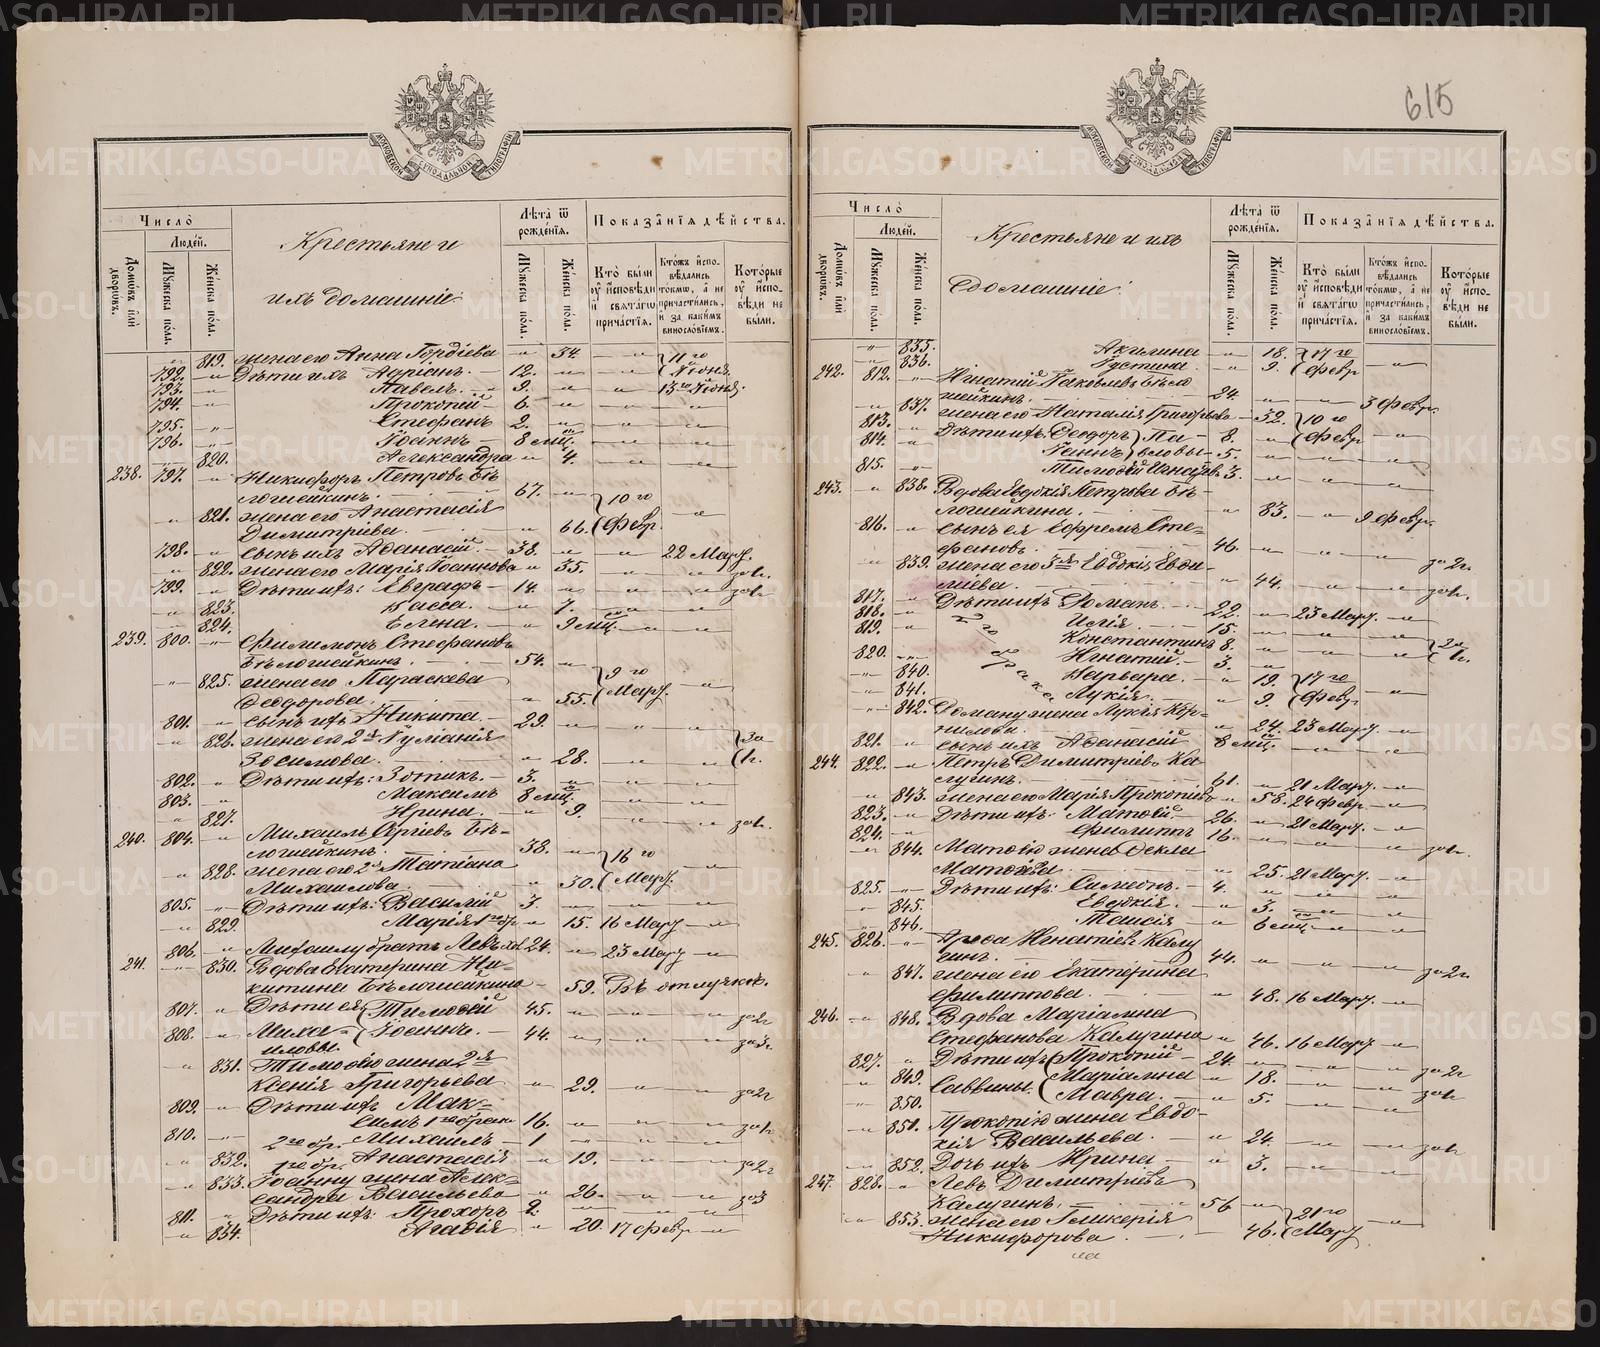 615
Число̀
Людéй.
Домѡ́въ илѝ дворѡ́въ.
Мꙋ́жеска по́ла.
Жéнска по́ла.
Крестьяне и
ихъ домашніе:
Лѣ́та ѿ рождéнїѧ.
Мꙋ́жеска по́ла.
Жéнска по́ла.
Показа̑нїѧ дѣ́йства.
Кто̀ бы́ли ᲂу҆ и҆́сповѣди и҆ свѧта́гѡ прича́стїѧ.
Кто́жъ и҆спо-вѣ́дались то́кмѡ, а҆ не причасти́лись, и҆ за каки́мъ винослóвїемъ.
Кото́рые ᲂу҆ и҆́спо-вѣди не бы́ли.
819. жена его Анна Гордіева 34. 11 го
792. Дѣти ихъ Адріанъ. 12. Іюня
793. Павелъ. 9. 13 го Іюня.
794. Прокопій 6.
795. Стефанъ 2.
796. Іоаннъ 8 мц.
820. Александра 4.
238. 797. Никифоръ Петровъ Бѣ-
лошейкинъ. 67. 10 го
821. жена его Анастасія
Димитріева. 66. Февр.
798. сынъ ихъ Аѳанасій. 38. 22 Март.
822. жена его Марія Іоаннова 35.
799. Дѣти ихъ: Евграфъ 14.
823. Васса. 7.
824. Елена. 9 мц.
239. 800. Филимонъ Стефановъ
Бѣлошейкинъ. 54. 9 го
825. жена его Параскева
Ѳеодорова. 55. Март.
801. сынъ ихъ Никита. 29.
826. жена его 2я Іуліанія
Зосимова. 28.
802. Дѣти ихъ: Зотикъ. 3.
803. Максимъ 8 мц.
827. Ирина. 9.
240. 804. Михаилъ Сергіевъ Бѣ-
лошейкинъ. 38. 16 го
828. жена его 2я Татіана
Михаилова. 30. Март.
805. Дѣти ихъ: Василій 3
829. Марія 1го бр. 15. 16 Март
806. Михаилу братъ Левъ хол. 24. 23 Март
241. 830. Вдова Екатерина Ни-
китина Бѣлошейкина 59. Въ отлучкѣ.
807. Дѣти ея Тимоѳей 45.
808. Миха- Іоаннъ. 44.
иловы.
831. Тимоѳею жена 2я
Ксенія Григорьева 29.
809. Дѣти ихъ Мак-
симъ 1го брака 16.
810. 2го бр. Михаилъ 1
832. 1го бр. Анастасія 19.
833. Іоанну жена Алек-
сандра Васильева 26.
811. Дѣти ихъ: Прохоръ 2.
834. Агаѳія 20. 17 февр
Число̀
Людéй.
Домѡ́въ илѝ дворѡ́въ.
Мꙋ́жеска по́ла.
Жéнска по́ла.
Крестьяне и ихъ
домашніе:
Лѣ́та ѿ рождéнїѧ.
Мꙋ́жеска по́ла.
Жéнска по́ла.
Показа̑нїѧ дѣ́йства.
Кто̀ бы́ли ᲂу҆ и҆́сповѣди и҆ свѧта́гѡ прича́стїѧ.
Кто́жъ и҆спо-вѣ́дались то́кмѡ, а҆ не причасти́лись, и҆ за каки́мъ винослóвїемъ.
Кото́рые ᲂу҆ и҆́спо-вѣди не бы́ли.
835. Акилина 18. 17 го
836. Іустина. 9. Февр
242. 812. Игнатій Іаковлевъ Бѣло
шейкинъ. 24. 3 Февр.
837. жена его Наталія Григорьева 32. 10 го
813. Дѣти ихъ: Ѳеодоръ 8. Февр
814. Іаннъ 5.
815. Тимоѳей Игнатьевъ 3.
243. 838. Вдова Евдокія Петрова Бѣ-
лошейкина. 83. 9 Февр.
816. сынъ ея Ефремъ Сте-
фановъ. 46.
839. жена его 3я Евдокія Евѳи-
міева. 44.
817. Дѣти ихъ Романъ. 22. 23 Март.
818. Илія. 15.
819. Константинъ 8.
820. Игнатій. 3.
840. Варвара. 19. 17 го
841. Лукія. 9. Февр
842. Роману жена Лукія Кор-
нилова. 24. 23 Март.
821. сынъ ихъ Аѳанасій 8 мц.
244. 822. Петръ Димитріевъ Ка-
лугинъ. 61. 21 Март.
843. жена его Марія Прокопіева 58. 24 Февр.
823. Дѣти ихъ: Матѳей 26. 21 Март.
824. Филиппъ 16.
844. Матѳею жена Ѳекла
Матѳіева. 25. 21 Март.
825. Дѣти ихъ: Симеонъ. 4.
845. Евдокія. 3.
846. Таисія 6 мц.
245. 826. Игнатіевъ Калу
гинъ. 44.
847. жена его Екатерина
Филиппова. 48. 16 Март.
246. 848. Вдова Маріамна
Стефанова Калугина 46. 16 Март
827. Дѣти ихъ Прокопій 24.
849. Саввины. Маріамна 18.
850. Мавра. 5.
851. Прокопію жена Евдо-
кія Васильева. 24.
852. Дочь ихъ Ирина 3.
247. 828. Левъ Димитріевъ
Калугинъ. 56 21 го
853. жена его Гликерія
Никифорова 46. Март